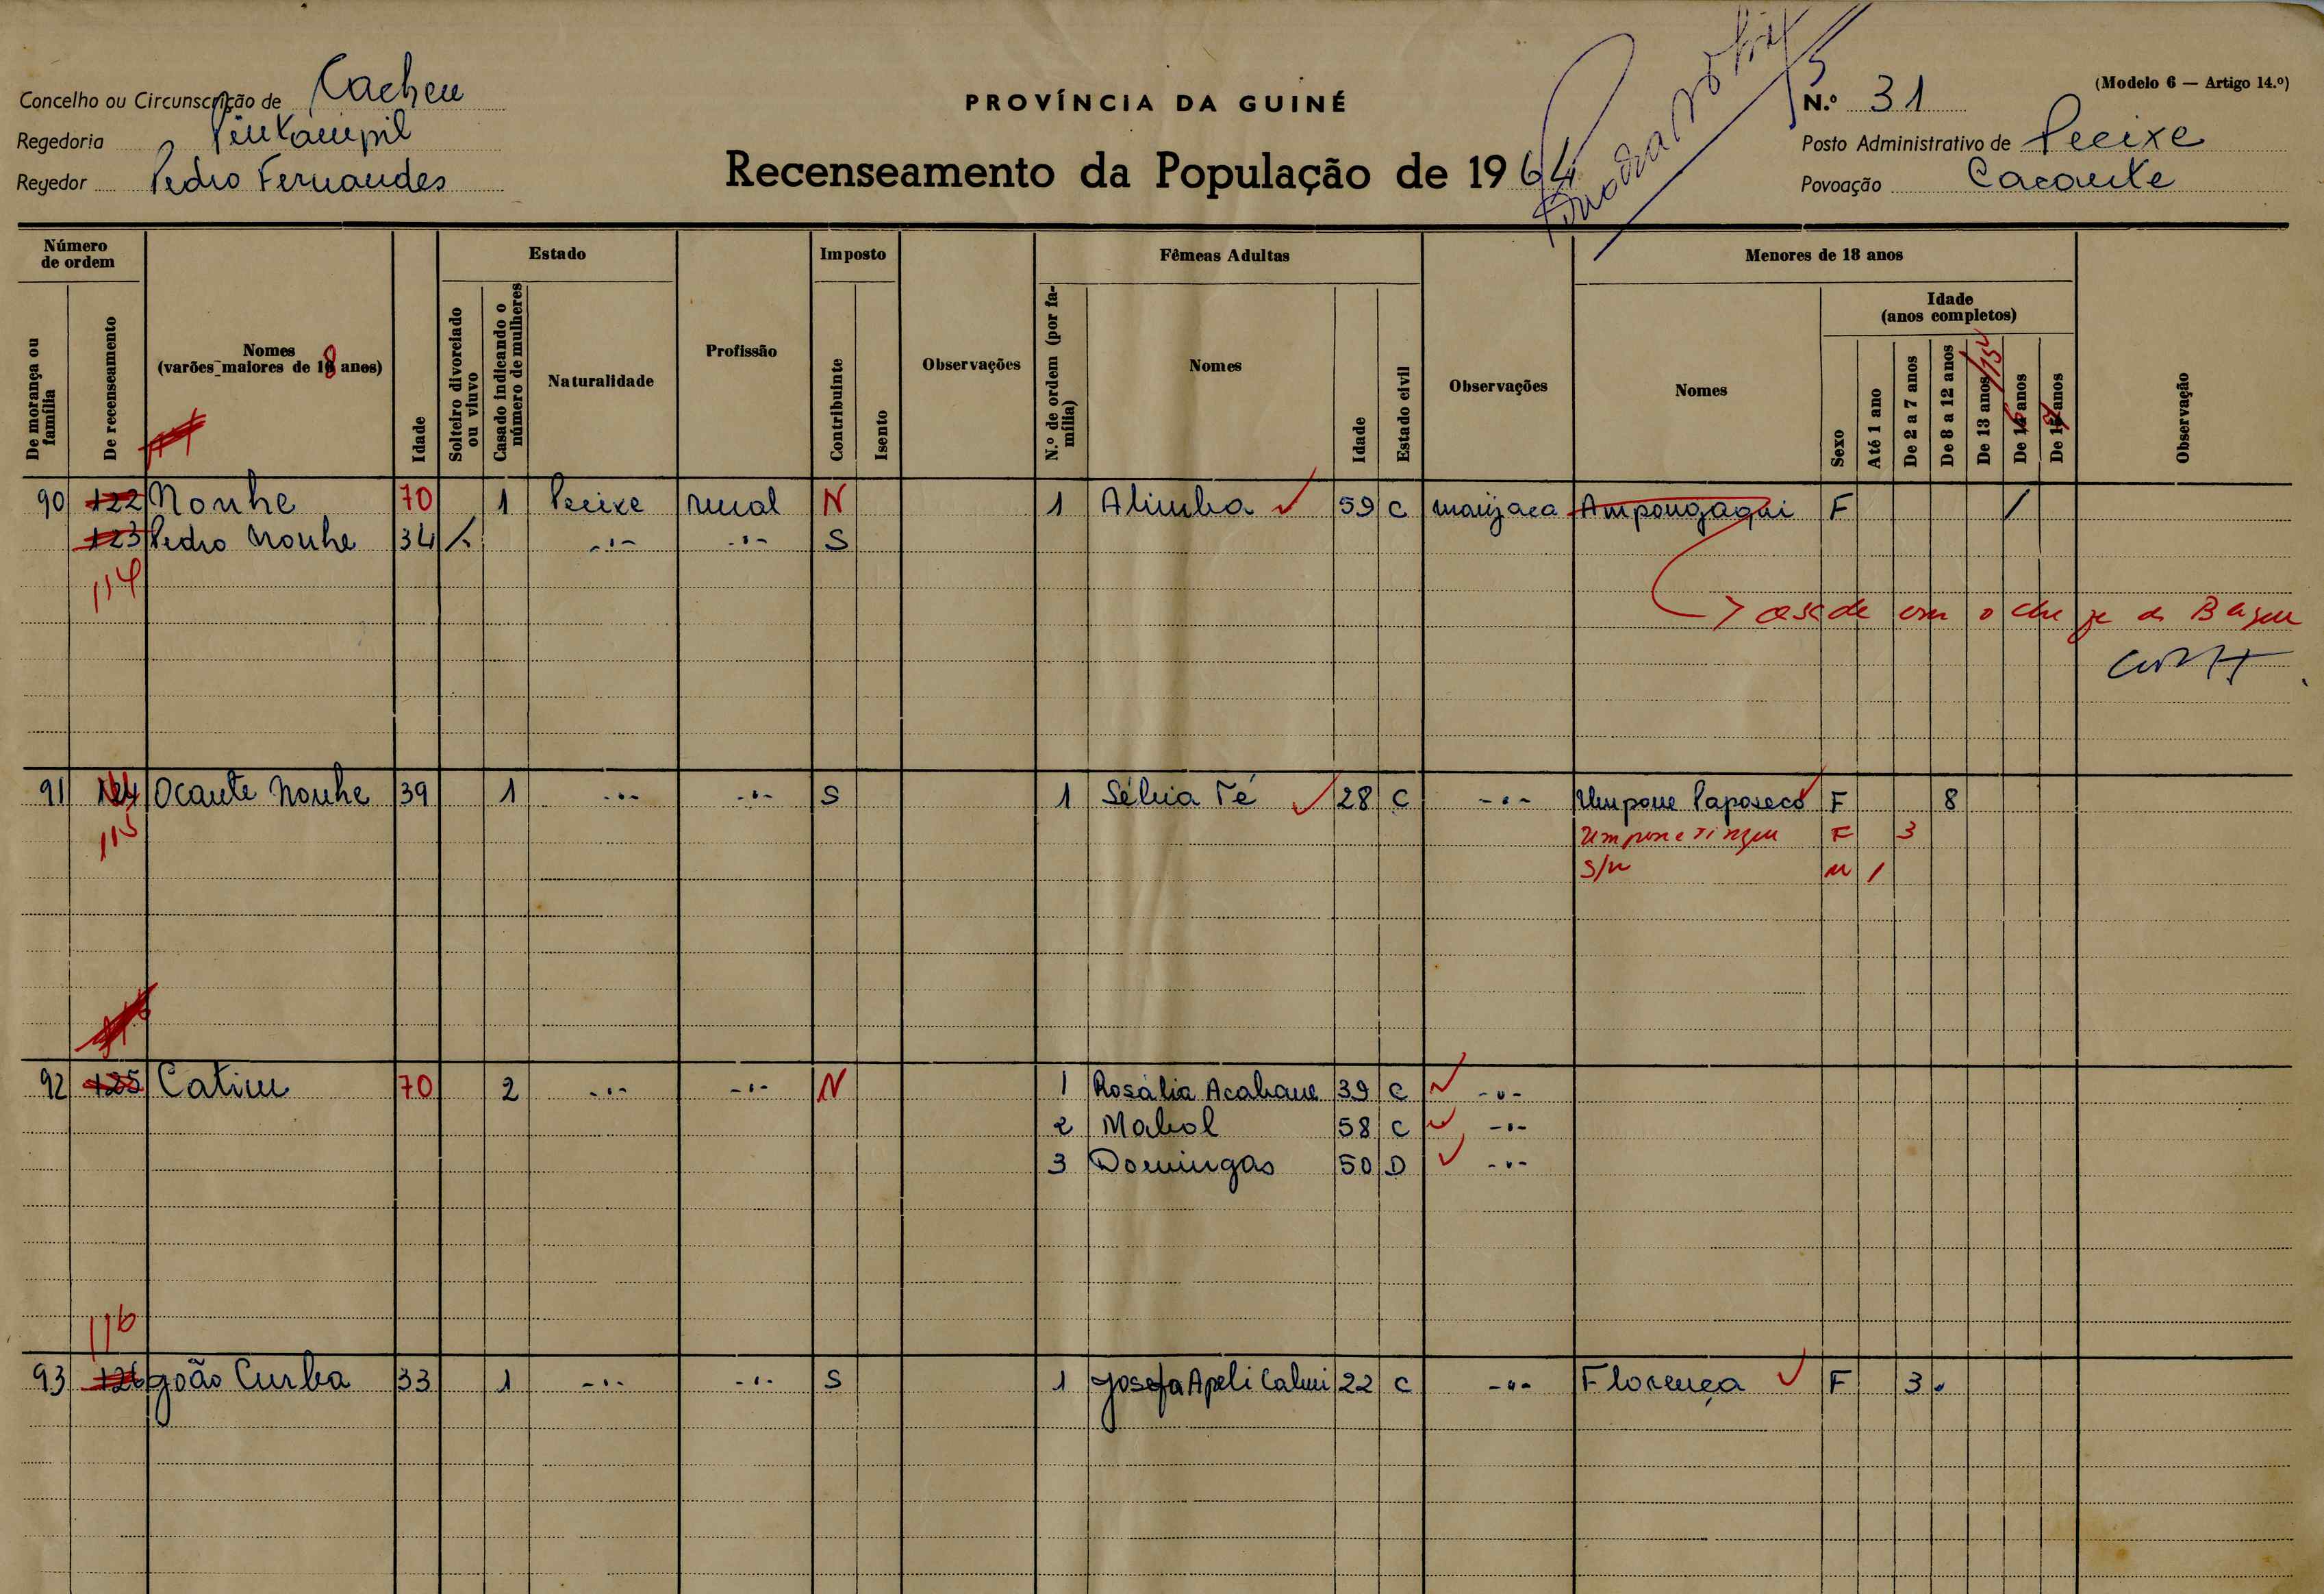 (Modelo 6 — Artigo 14.º)
Concelho ou Circunscrição de Cacheu
PROVÍNCIA DA GUINÉ
N.º 31
Regedoria
Posto Administrativo de Pecixe
Regedor Pedro Fernandes
Recenseamento da População de 1964
Povoação Cacante
Número de ordem
De morança ou família
De recenseamento
Nomes
(varões maiores de 18 anos)
Idade
Estado
Solteiro divorciado ou viuvo
Casado indicando o número de mulheres
Naturalidade
Profissão
Imposto
Contribuinte
Isento
Observações
Fêmeas Adultas
N.º de ordem (por família)
Nomes
Idade
Estado civil
Observações
Menores de 18 anos
Nomes
Idade
(anos completos)
Sexo
Até 1 ano
De 2 a 7 anos
De 8 a 12 anos
De 13 anos /15
De 16 anos
De 17 anos
Observação
90 122 Nonhe 70 1 Pecixe rural N 1 Alimba 59 C manjaca Ampongaqui F /
123 Pedro Nonhe 34 / -"- -"- S
114
> casada com o
91 124 Ocante Nonhe 39 1 -"- -"- S 1 Sélvia Té 28 C -"- Umpone Paposeco F 8
115 F 3
S/N M 1
92 125 Catim 70 2 -"- -"- N 1 Rosália Acabane 39 C -"-
2 Mabol 58 C -"-
3 Domingas 50 D -"-
116
93 126 João Curba 33 1 -"- -"- S 1 Josefa Apeli Calmi 22 C -"- Florença F 3